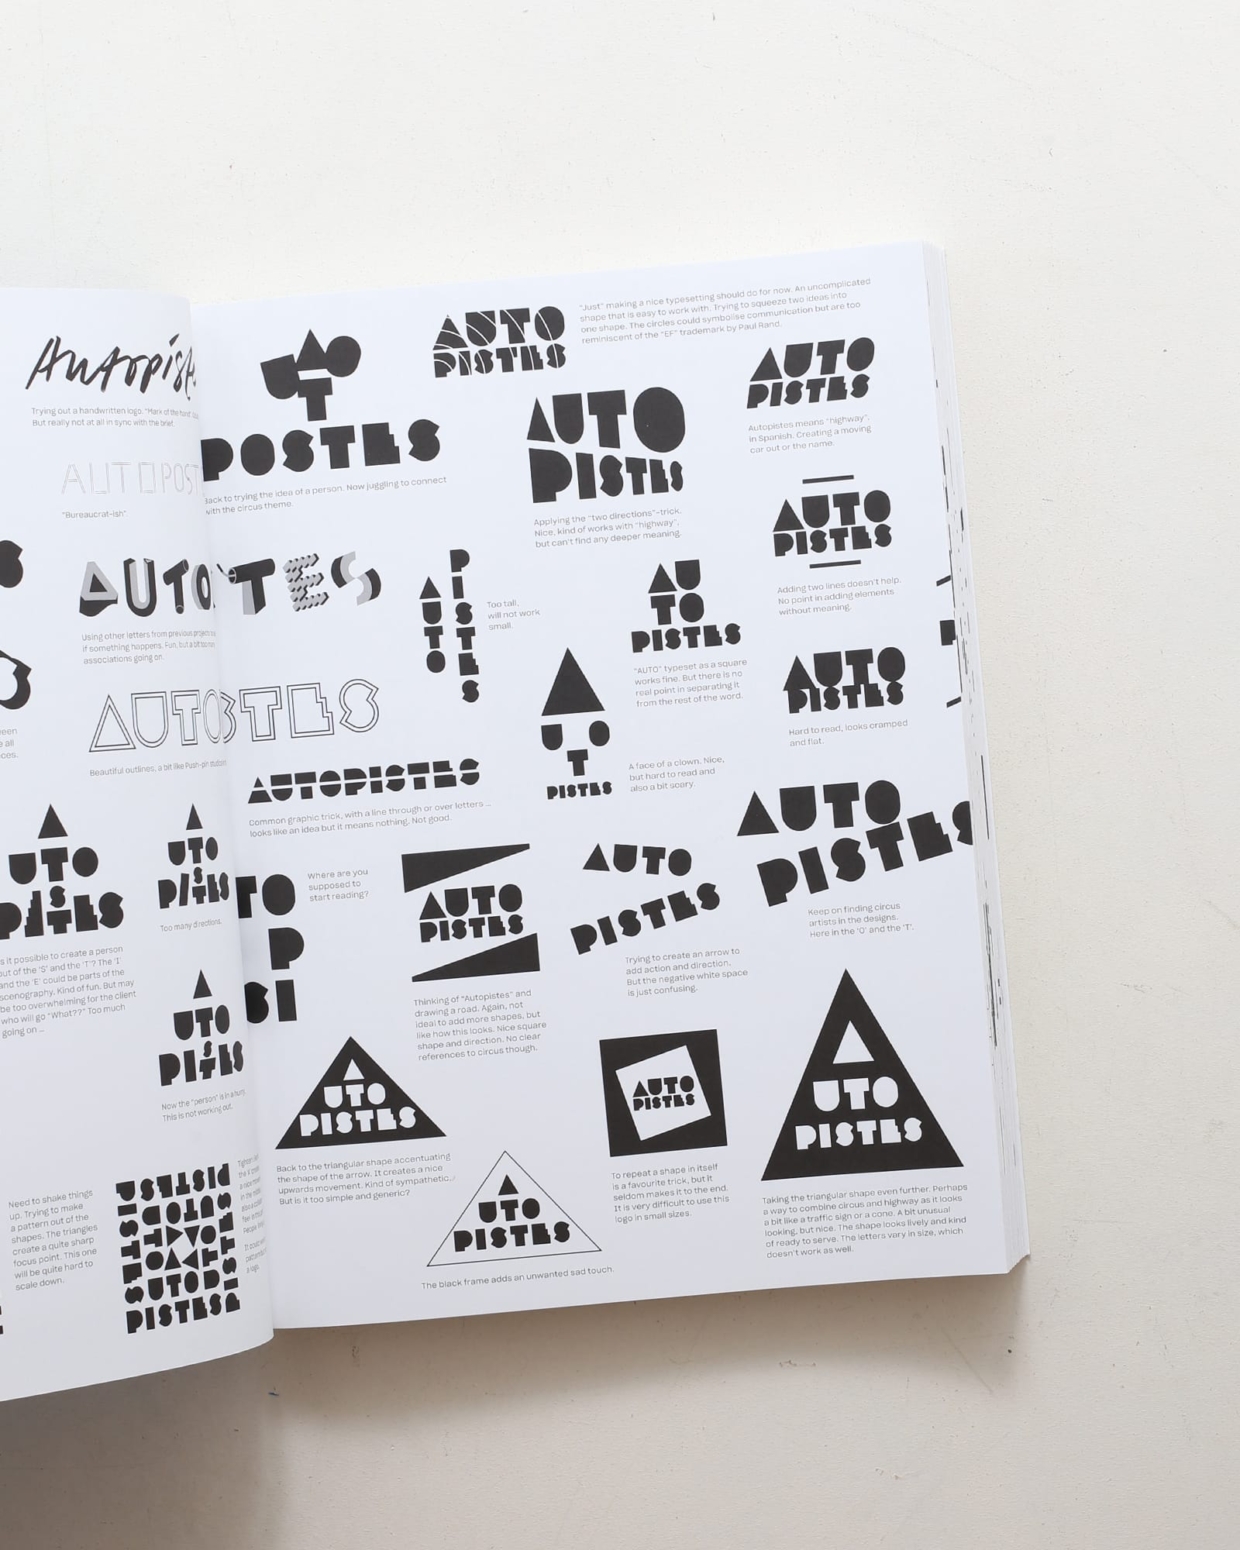 Autopist
Trying out a handwritten logo. "Mark of the hand"
But really not at all in sync with the brief.
AUTOPOST
"Bureaucrat-ish".
AUTO TES
Using other letters from previous projects
if something happens. Fun, but a bit too many
associations going on.
AUTO STES
Beautiful outlines, a bit like Push-pin
A
UTO
PISTES
Is it possible to create a person
out of the 'S' and the 'T'? The 'I'
and the 'E' could be parts of the
scenography. Kind of fun. But may
be too overwhelming for the client
who will go "What??" Too much
going on ...
A
UTO
PISTES
Too many directions.
A
UTO
PISTES
Now the "person" is in a hurry.
This is not working out.
Need to shake things
up. Trying to make
a pattern out of the
shapes. The triangles
create a quite sharp
focus point. This one
will be quite hard to
scale down.
SUTOP
PISTES
UAO
T
POSTES
Back to trying the idea of a person. Now juggling to connect
with the circus theme.
AUTO
PISTES
"Just" making a nice typesetting should do for now. An uncomplicated
shape that is easy to work with. Trying to squeeze two ideas into
one shape. The circles could symbolise communication but are too
reminiscent of the "EF" trademark by Paul Rand.
AUTO
PISTES
Applying the "two directions"-trick.
Nice, kind of works with "highway",
but can't find any deeper meaning.
AUTO
PISTES
Autopistes means "highway",
in Spanish. Creating a moving
car out or the name.
AUTO
PISTES
Adding two lines doesn't help.
No point in adding elements
without meaning.
AUTO
PISTES
Too tall,
will not work
small.
AU
TO
PISTES
"AUTO" typeset as a square
works fine. But there is no
real point in separating it
from the rest of the word.
AUTO
PISTES
Hard to read, looks cramped
and flat.
A
U O
T
PISTES
A face of a clown. Nice,
but hard to read and
also a bit scary.
AUTOPISTES
Common graphic trick, with a line through or over letters ...
looks like an idea but it means nothing. Not good.
TO
P
SI
Where are you
supposed to
start reading?
AUTO
PISTES
Thinking of "Autopistes" and
drawing a road. Again, not
ideal to add more shapes, but
like how this looks. Nice square
shape and direction. No clear
references to circus though.
AUTO
PISTES
Trying to create an arrow to
add action and direction.
But the negative white space
is just confusing.
AUTO
PISTES
Keep on finding circus
artists in the designs.
Here in the 'O' and the 'T'.
A
UTO
PISTES
Back to the triangular shape accentuating
the shape of the arrow. It creates a nice
upwards movement. Kind of sympathetic...
But is it too simple and generic?
A
UTO
PISTES
The black frame adds an unwanted sad touch.
AUTO
PISTES
To repeat a shape in itself
is a favourite trick, but it
seldom makes it to the end.
It is very difficult to use this
logo in small sizes.
A
UTO
PISTES
Taking the triangular shape even further. Perhaps
a way to combine circus and highway as it looks
a bit like a traffic sign or a cone. A bit unusual
looking, but nice. The shape looks lively and kind
of ready to serve. The letters vary in size, which
doesn't work as well.